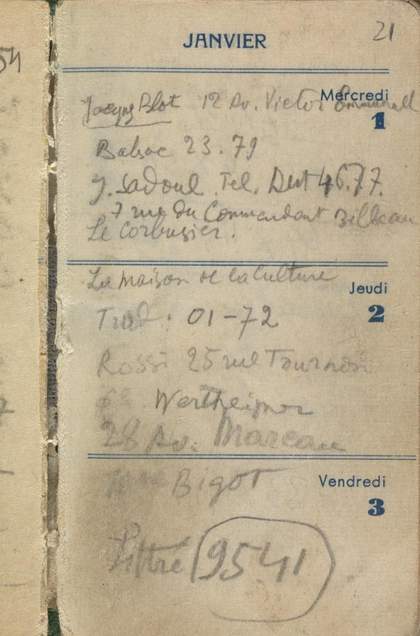 54
21
JANVIER
Jacques Blot 12 Av. Victor Emmanuel
Mercredi
1
Balzac 23.79
J. Sadoul. Tel. 46.77.
7 rue du Commandant
Le Corbusier.
La maison de la culture
Jeudi
2
01-72
Rossi 25 rue Tournon
Wertheimer
28 Av. Marceau
Bigot
Vendredi
3
Littré 9541